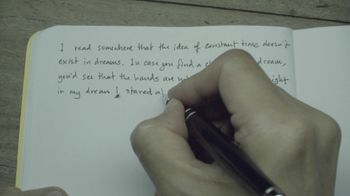 I read somewhere that the idea of constant time doesn't
exist in dreams. In case you find a dream,
you'd see that the hands are
in my dream I stared a